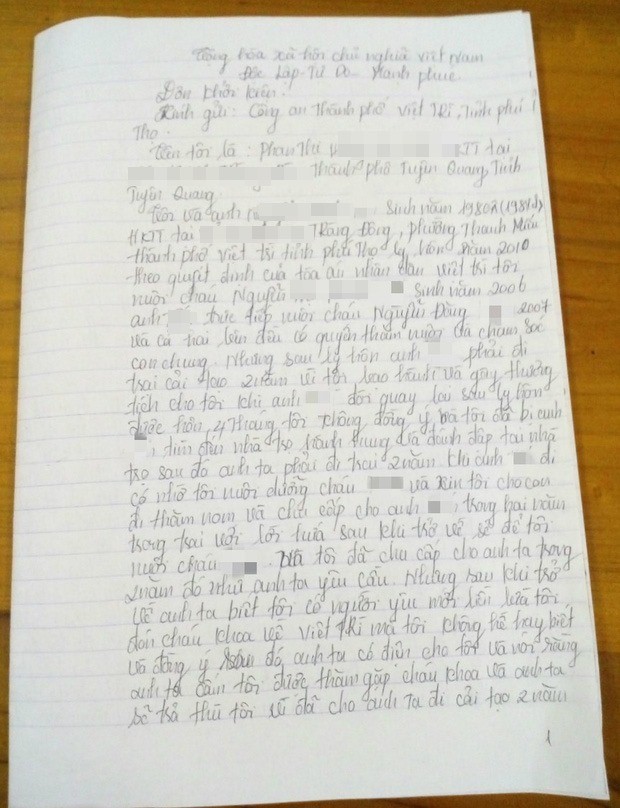 Cộng hòa xã hội chủ nghĩa việt Nam
Độc Lập - Tự Do - Hạnh phúc
Đơn khởi kiện.
Kính gửi: Công an thành phố việt trì, Tỉnh phú
Thọ.
Tên tôi là: Phan Thị KTT tại
Thành phố Tuyên Quang, Tỉnh
Tuyên Quang
Tôi và anh Sinh năm 1980
HKTT tại Trăng Đông, phường Thanh Miếu
thành phố việt trì tỉnh phú Thọ ly hôn năm 2010
theo quyết định của tòa án nhân dân việt trì tôi
nuôi cháu Nguyễn Sinh năm 2006
anh trực tiếp nuôi cháu Nguyễn Đông 2007
và cả hai bên đều có quyền thăm nuôi và chăm sóc
con chung. Nhưng sau ly hôn anh phải đi
trại cải tạo 2 năm vì tội bạo hành và gây thương
tích cho tôi khi anh đòi quay lại sau ly hôn
được hơn 4 tháng tôi không đồng ý và tôi đã bị anh
, tìm đến nhà trọ hành hung đánh đập tại nhà
trọ sau đó anh ta phải đi trại 2 năm. Khi anh đi
có nhờ tôi nuôi dưỡng cháu và xin tôi cho con
đi thăm nom và chu cấp cho anh trong hai năm
trong trại với lời hứa sau khi trở về sẽ để tôi
nuôi cháu . Và tôi đã chu cấp cho anh ta trong
2 năm đó như anh ta yêu cầu. Nhưng sau khi trở
về anh ta biết tôi có người yêu mới liền lừa tôi
đón cháu khoa về việt Trì mà tôi không hề hay biết
và đồng ý sau đó anh ta có điện cho tôi và nói rằng
anh ta cấm tôi được thăm gặp cháu khoa và anh ta
sẽ trả thù tôi vì đã cho anh ta đi cải tạo 2 năm
1